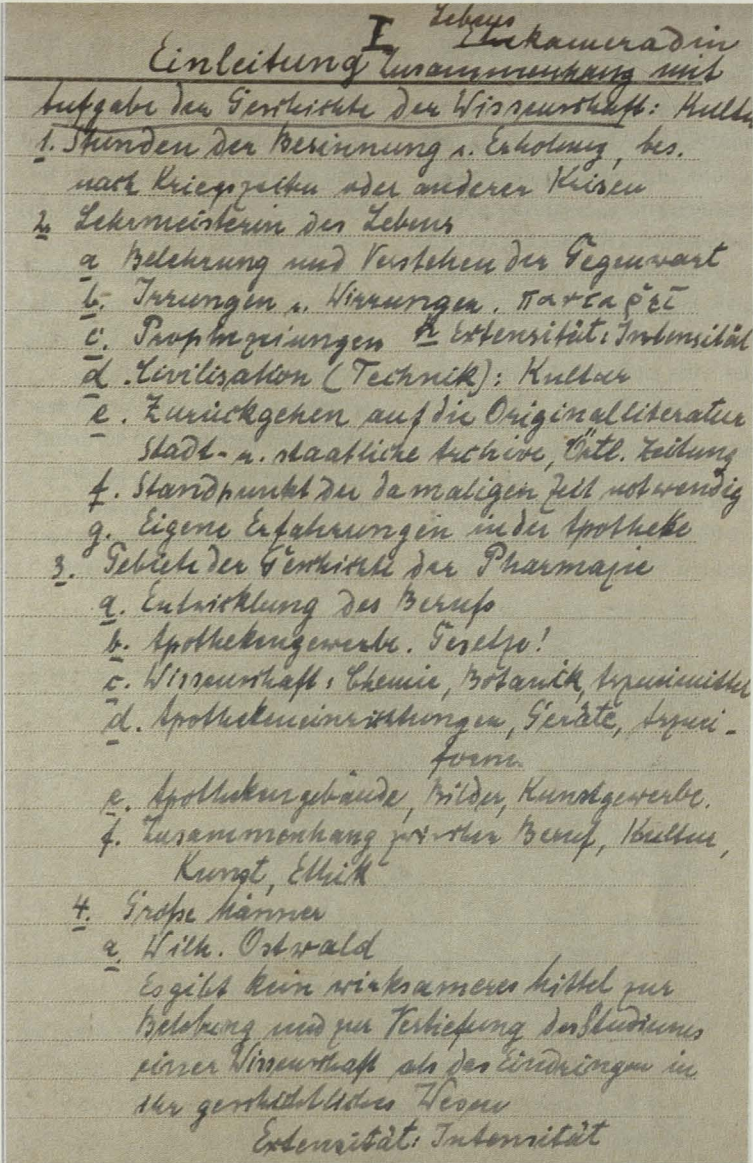 I Lebens
Ehekameradin
Einleitung Zusammenhang mit
Aufgabe der Geschichte der Wissenschaft: Kultu
1. Stunden der Besinnung u. Erholung, bes.
nach Kriegszeiten oder anderer Krisen
2. Lehrmeisterin des Lebens
a Belehrung und Verstehen der Gegenwart
b. Irrungen u. Wirrungen. παντα ρει
c. Prophezeiungen h Extensität: Intensität
d. Civilisation (Technik): Kultur
e. Zurückgehen auf die Originalliteratur
Stadt- u. staatliche Archive, Örtl. Zeitung
f. Standpunkt der damaligen Zeit notwendig
g. Eigene Erfahrungen in der Apotheke
3. Gebiete der Geschichte der Pharmazie
a. Entwicklung des Berufs
b. Apothekengewerbe. Gesetze!
c. Wissenschaft: Chemie, Botanik, Arzneimittel
d. Apothekeneinrichtungen, Geräte, Arznei-
formen
e. Apothekengebäude, Bilder, Kunstgewerbe.
f. Zusammenhang zwischen Beruf, Kultur,
Kunst, Ethik
4. Große Männer
a. Wilh. Ostwald
Es gibt kein wirksameres Mittel zur
Belebung und zur Vertiefung des Studiums
einer Wissenschaft als das Eindringen in
ihr geschichtliches Wesen
Extensität: Intensität